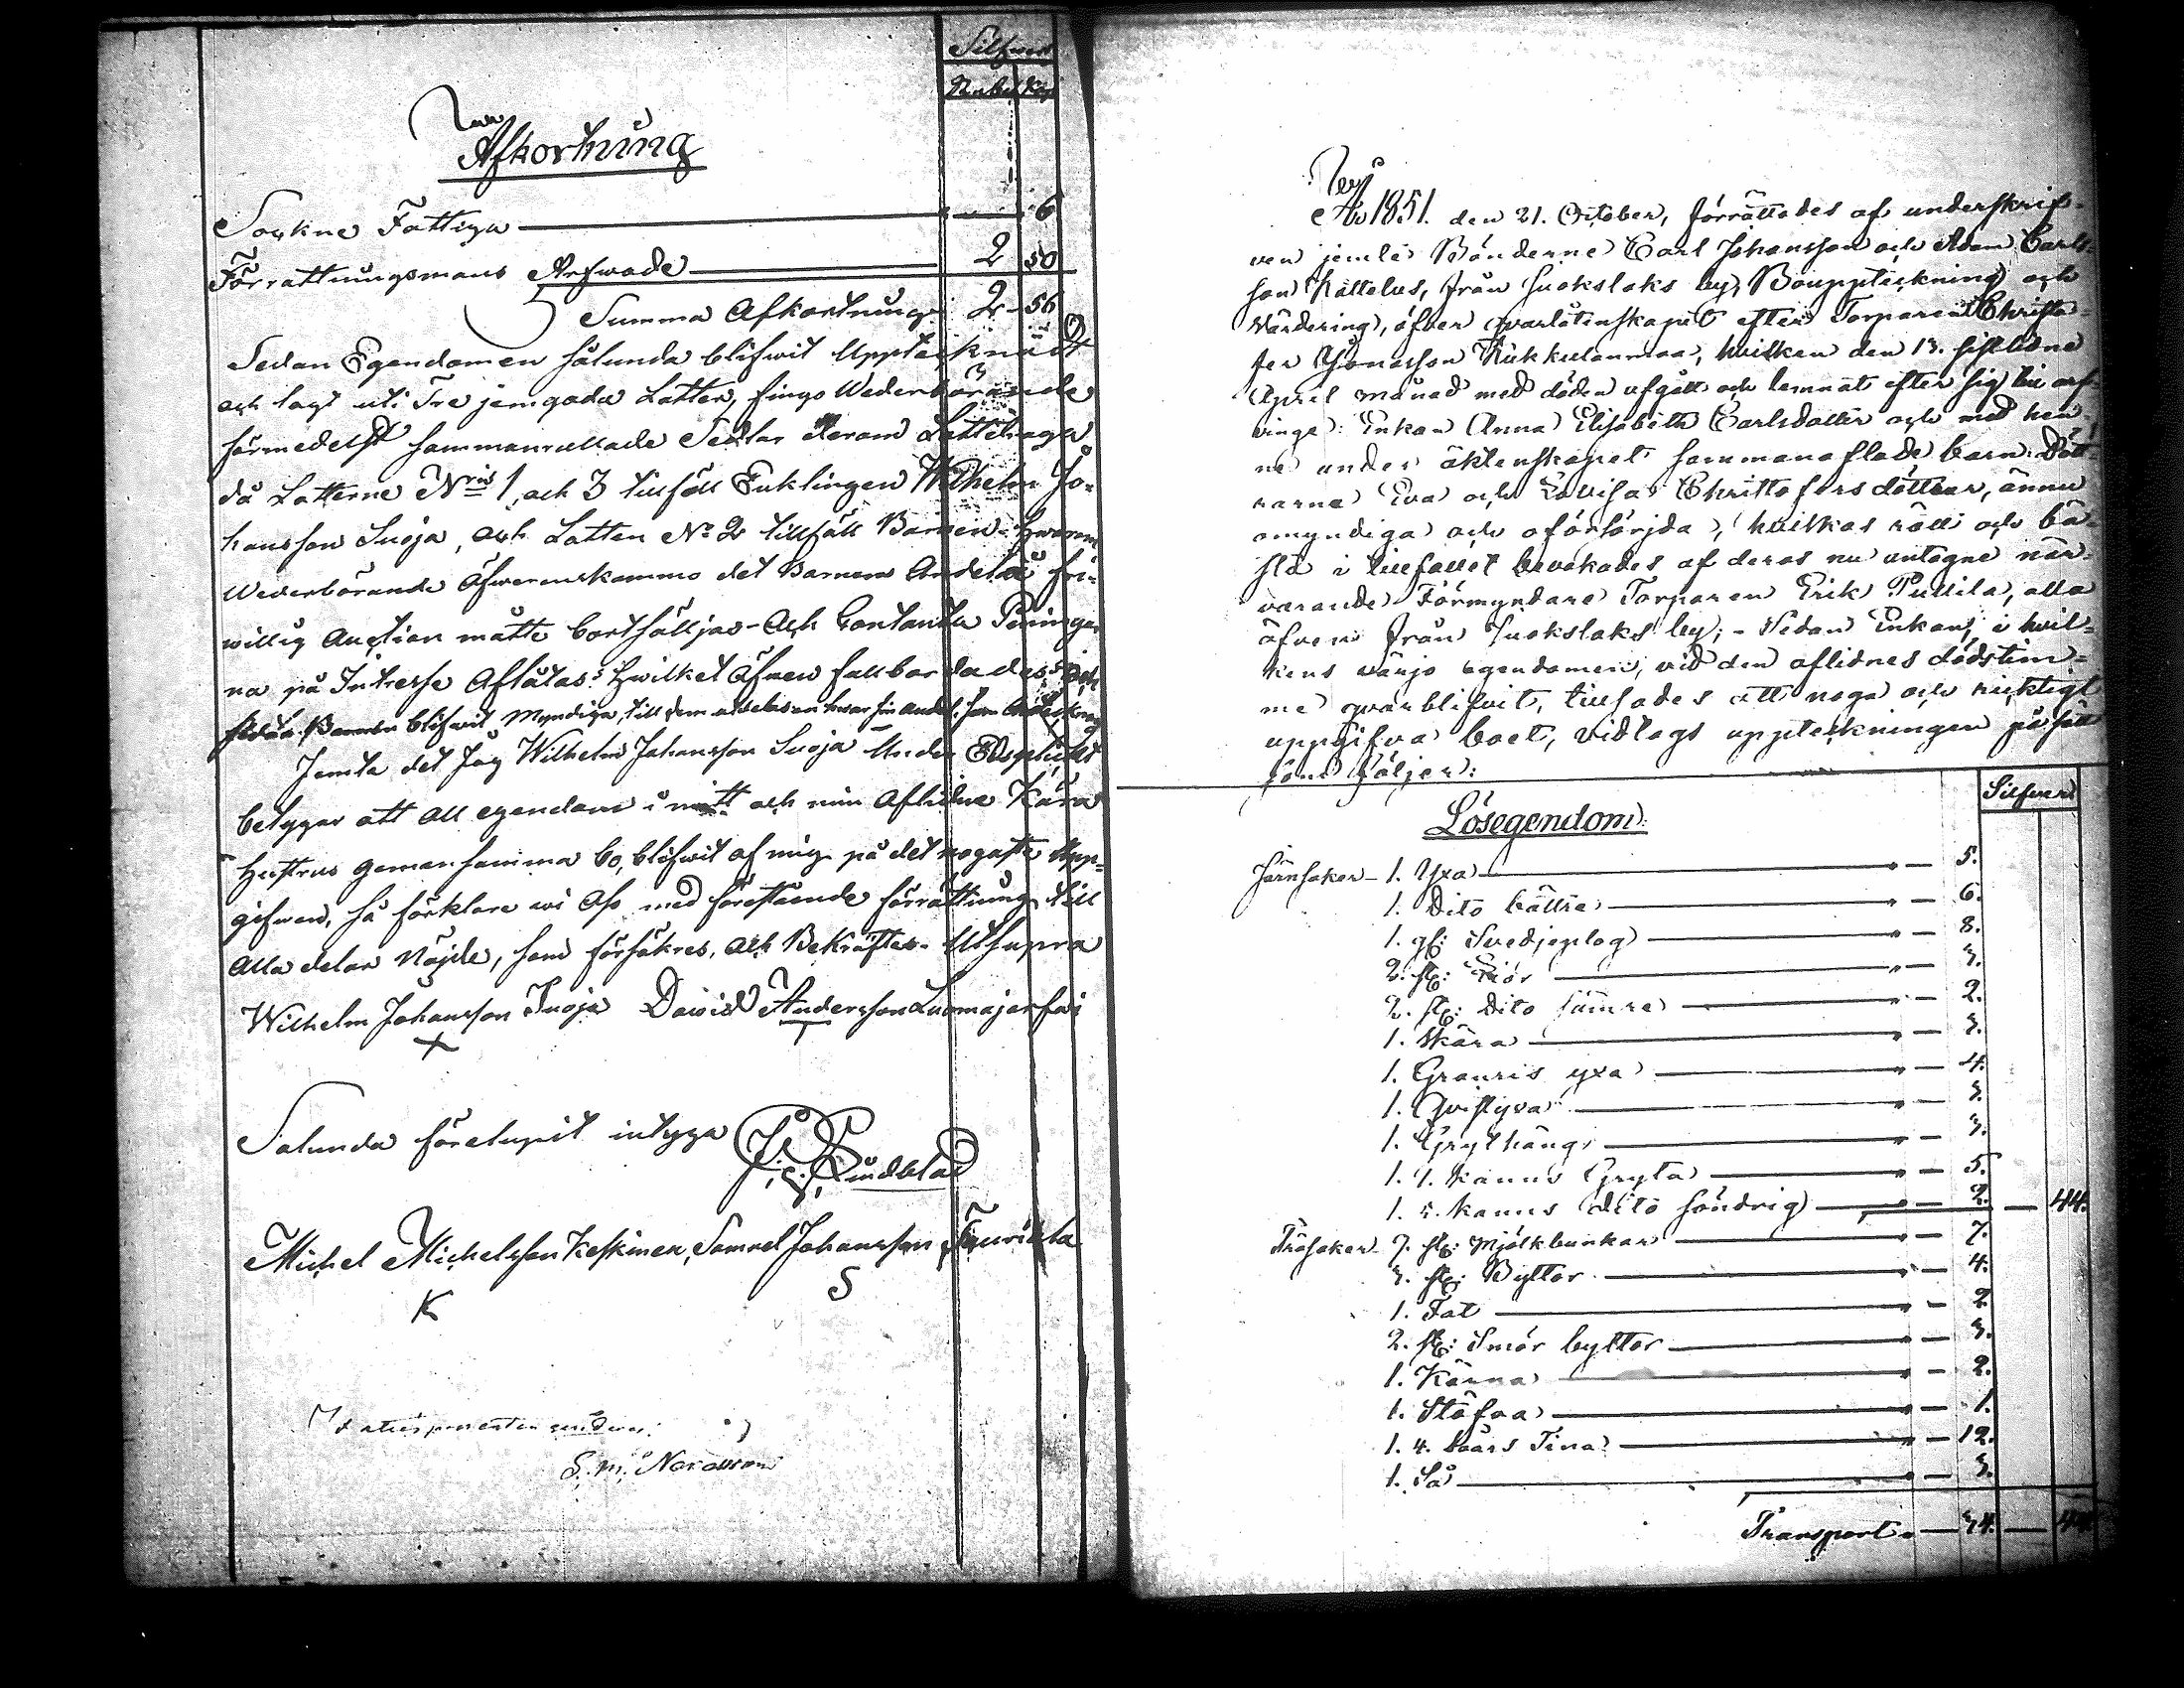 Silfwer
Rubel Kop
Afkortning
Sockne Fattiga 6
Förrattningsmans Arfwode 2 50
Summa Afkortning 2 56
Sedan Egendomen sålunda blifwit Upptecknadt
och lagt uti Tre jemgoda Lotter, fingo Wederbörande
förmedelst sammanrullade Sedlar derom Lottdraga
då Lotterne Nris 1, och 3 tillföll Enklingen Wilhelm Jo-
hansson Suoja, och Lotten No 2 tillföll Barnen. Hwarom
Wederbörande öfwerenskommo det Barnens Andel å fri-
willig Auction måtte bortsälljas - Och Contanta Peningar
na på Intresse Aflåtas: Hwilket äfwen fullbordades
Barnen blifwit Myndiga, till dem hwar sin andel.
Jemte det Jag Wilhelm Johansson Suoja Under Edsplickt
betygar att all egendom i mitt och min Aflidne Kära
Hustrus gemensamma bo, blifwit af mig på det nogaste Upp-
gifwen, så förklare wi Oss med förestående förrättning till
Alla delar Nöjde, som försäkres, och Bekräftes. Ut supra
Wilhelm Johansson Suoja Dawid Andersson Luomajerfwi
X T
Sålunda förelupit intyga J. G. Lindblad
Michel Michelsson Keskinen, Samuel Johansson
K S
S. M.
År 1851. den 21. October, förrättades af underskrif-
ven jemte Bönderne Carl Johansson och Adam Carls-
son Kättelus, från Suokslaks by, Bouppteckning och
Värdering, öfver qvarlåtenskapet efter Torparen Christo-
fer Jonasson Kukkulanmaa, hvilken den 13. sistledne
April månad med döden afgått och lemnat efter sig till arf-
vinge: Enkan Anna Elisabeth Carlsdotter och med hen-
ne under äktenskapet sammanaflade barn: Dött-
rarne Eva och Lovisa Christofersdöttrar, ännu
omyndiga och oförsörjda, hvilkas rätt och bä-
sta i tillfället bevakades af deras nu antagne när-
varande Förmyndare Torparen Erik Pullila, alla
äfven från Suokslaks by; - Sedan Enkan, i hvil-
kens värjo egendomen, vid den aflidnes dödstim-
me qvarblifvit, tillsades att noga och riktigt
uppgifva boet, vidtogs uppteckningen på sätt
som följer:
Silfver
Lösegendom:
Järnsaker - 1. Yxa " — 5.
1. Dito bättre " — 6.
1. gl: Svedjeplog " — 8.
2. st: Lior " — 3.
2. st: Dito sämre " — 2.
1. Skära " — 3.
1. Granris yxa " — 4.
1. Qvistyxa " — 3.
1. Grythäng " — 3.
1. 1. kanns Gryta " — 5.
1. 5. kanns Dito söndrig " — 2. — 44.
Träsaker - 7. st: Mjölkbunkar " — 7.
3. st: Byttor " — 4.
1. Fat " — 2
2. st: Smör byttor " — 3.
1. Kärna " — 2.
1. Stäfva " — 1.
1. 4. kaars Tina " — 12.
1. Så " — 3.
Transport " — 34. — 44.